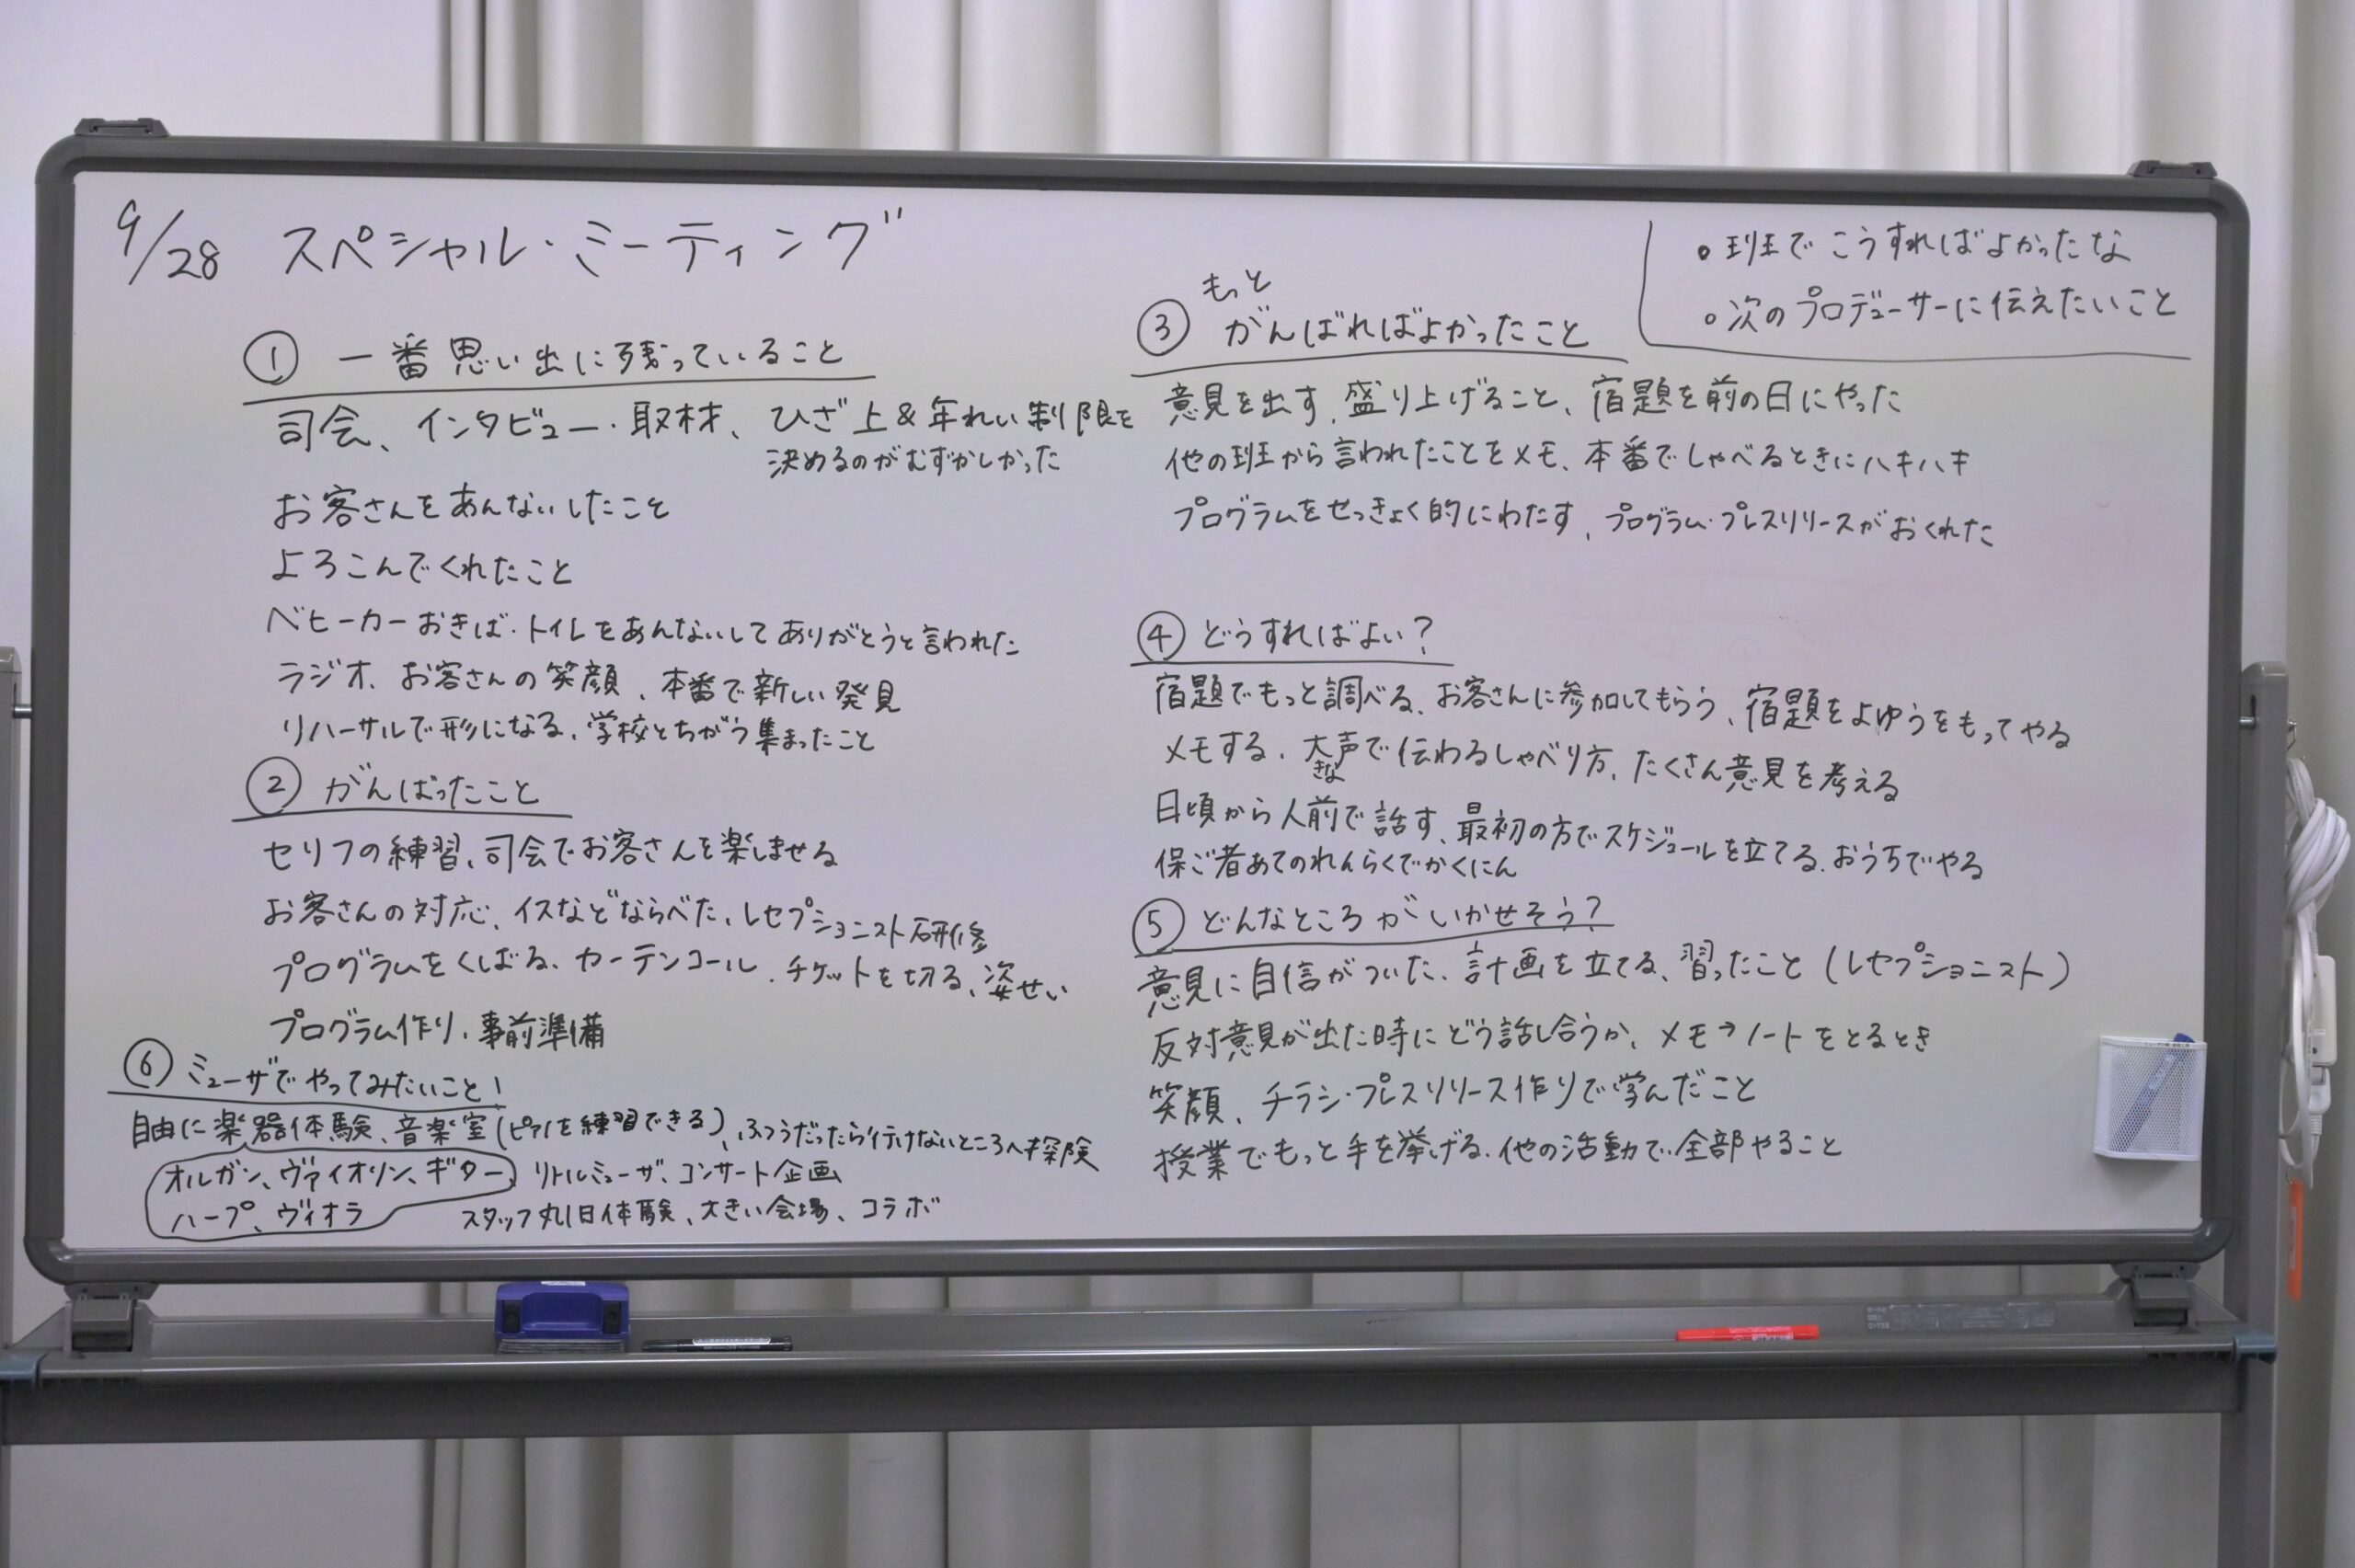 9/28 スペシャル・ミーティング
① 一番思い出に残っていること
司会、インタビュー・取材、ひざ上&年れい制限を
決めるのがむずかしかった
お客さんをあんないしたこと
よろこんでくれたこと
ベビーカーおきば・トイレをあんないしてありがとうと言われた
ラジオ、お客さんの笑顔、本番で新しい発見
リハーサルで形になる、学校とちがう集まったこと
② がんばったこと
セリフの練習、司会でお客さんを楽しませる
お客さんの対応、イスなどならべた、レセプショニスト研修
プログラムをくばる、カーテンコール、チケットを切る、姿せい
プログラム作り、事前準備
⑥ ミューザでやってみたいこと!
自由に楽器体験、音楽室(ピアノを練習できる)、ふつうだったら行けないところへ探険
オルガン、ヴァイオリン、ギター、
ハープ、ヴィオラ
リトルミューザ、コンサート企画
スタッフ丸1日体験、大きい会場、コラボ
・班でこうすればよかったな
・次のプロデューサーに伝えたいこと
③ もっと
がんばればよかったこと
意見を出す、盛り上げること、宿題を前の日にやった
他の班から言われたことをメモ、本番でしゃべるときにハキハキ
プログラムをせっきょく的にわたす、プログラム・プレスリリースがおくれた
④ どうすればよい?
宿題でもっと調べる、お客さんに参加してもらう、宿題をよゆうをもってやる
メモする、大きな声で伝わるしゃべり方、たくさん意見を考える
日頃から人前で話す、最初の方でスケジュールを立てる、おうちでやる
保ご者あてのれんらくでかくにん
⑤ どんなところがいかせそう?
意見に自信がついた、計画を立てる、習ったこと(レセプショニスト)
反対意見が出た時にどう話し合うか、メモ→ノートをとるとき
笑顔、チラシ・プレスリリース作りで学んだこと
授業でもっと手を挙げる、他の活動で全部やること